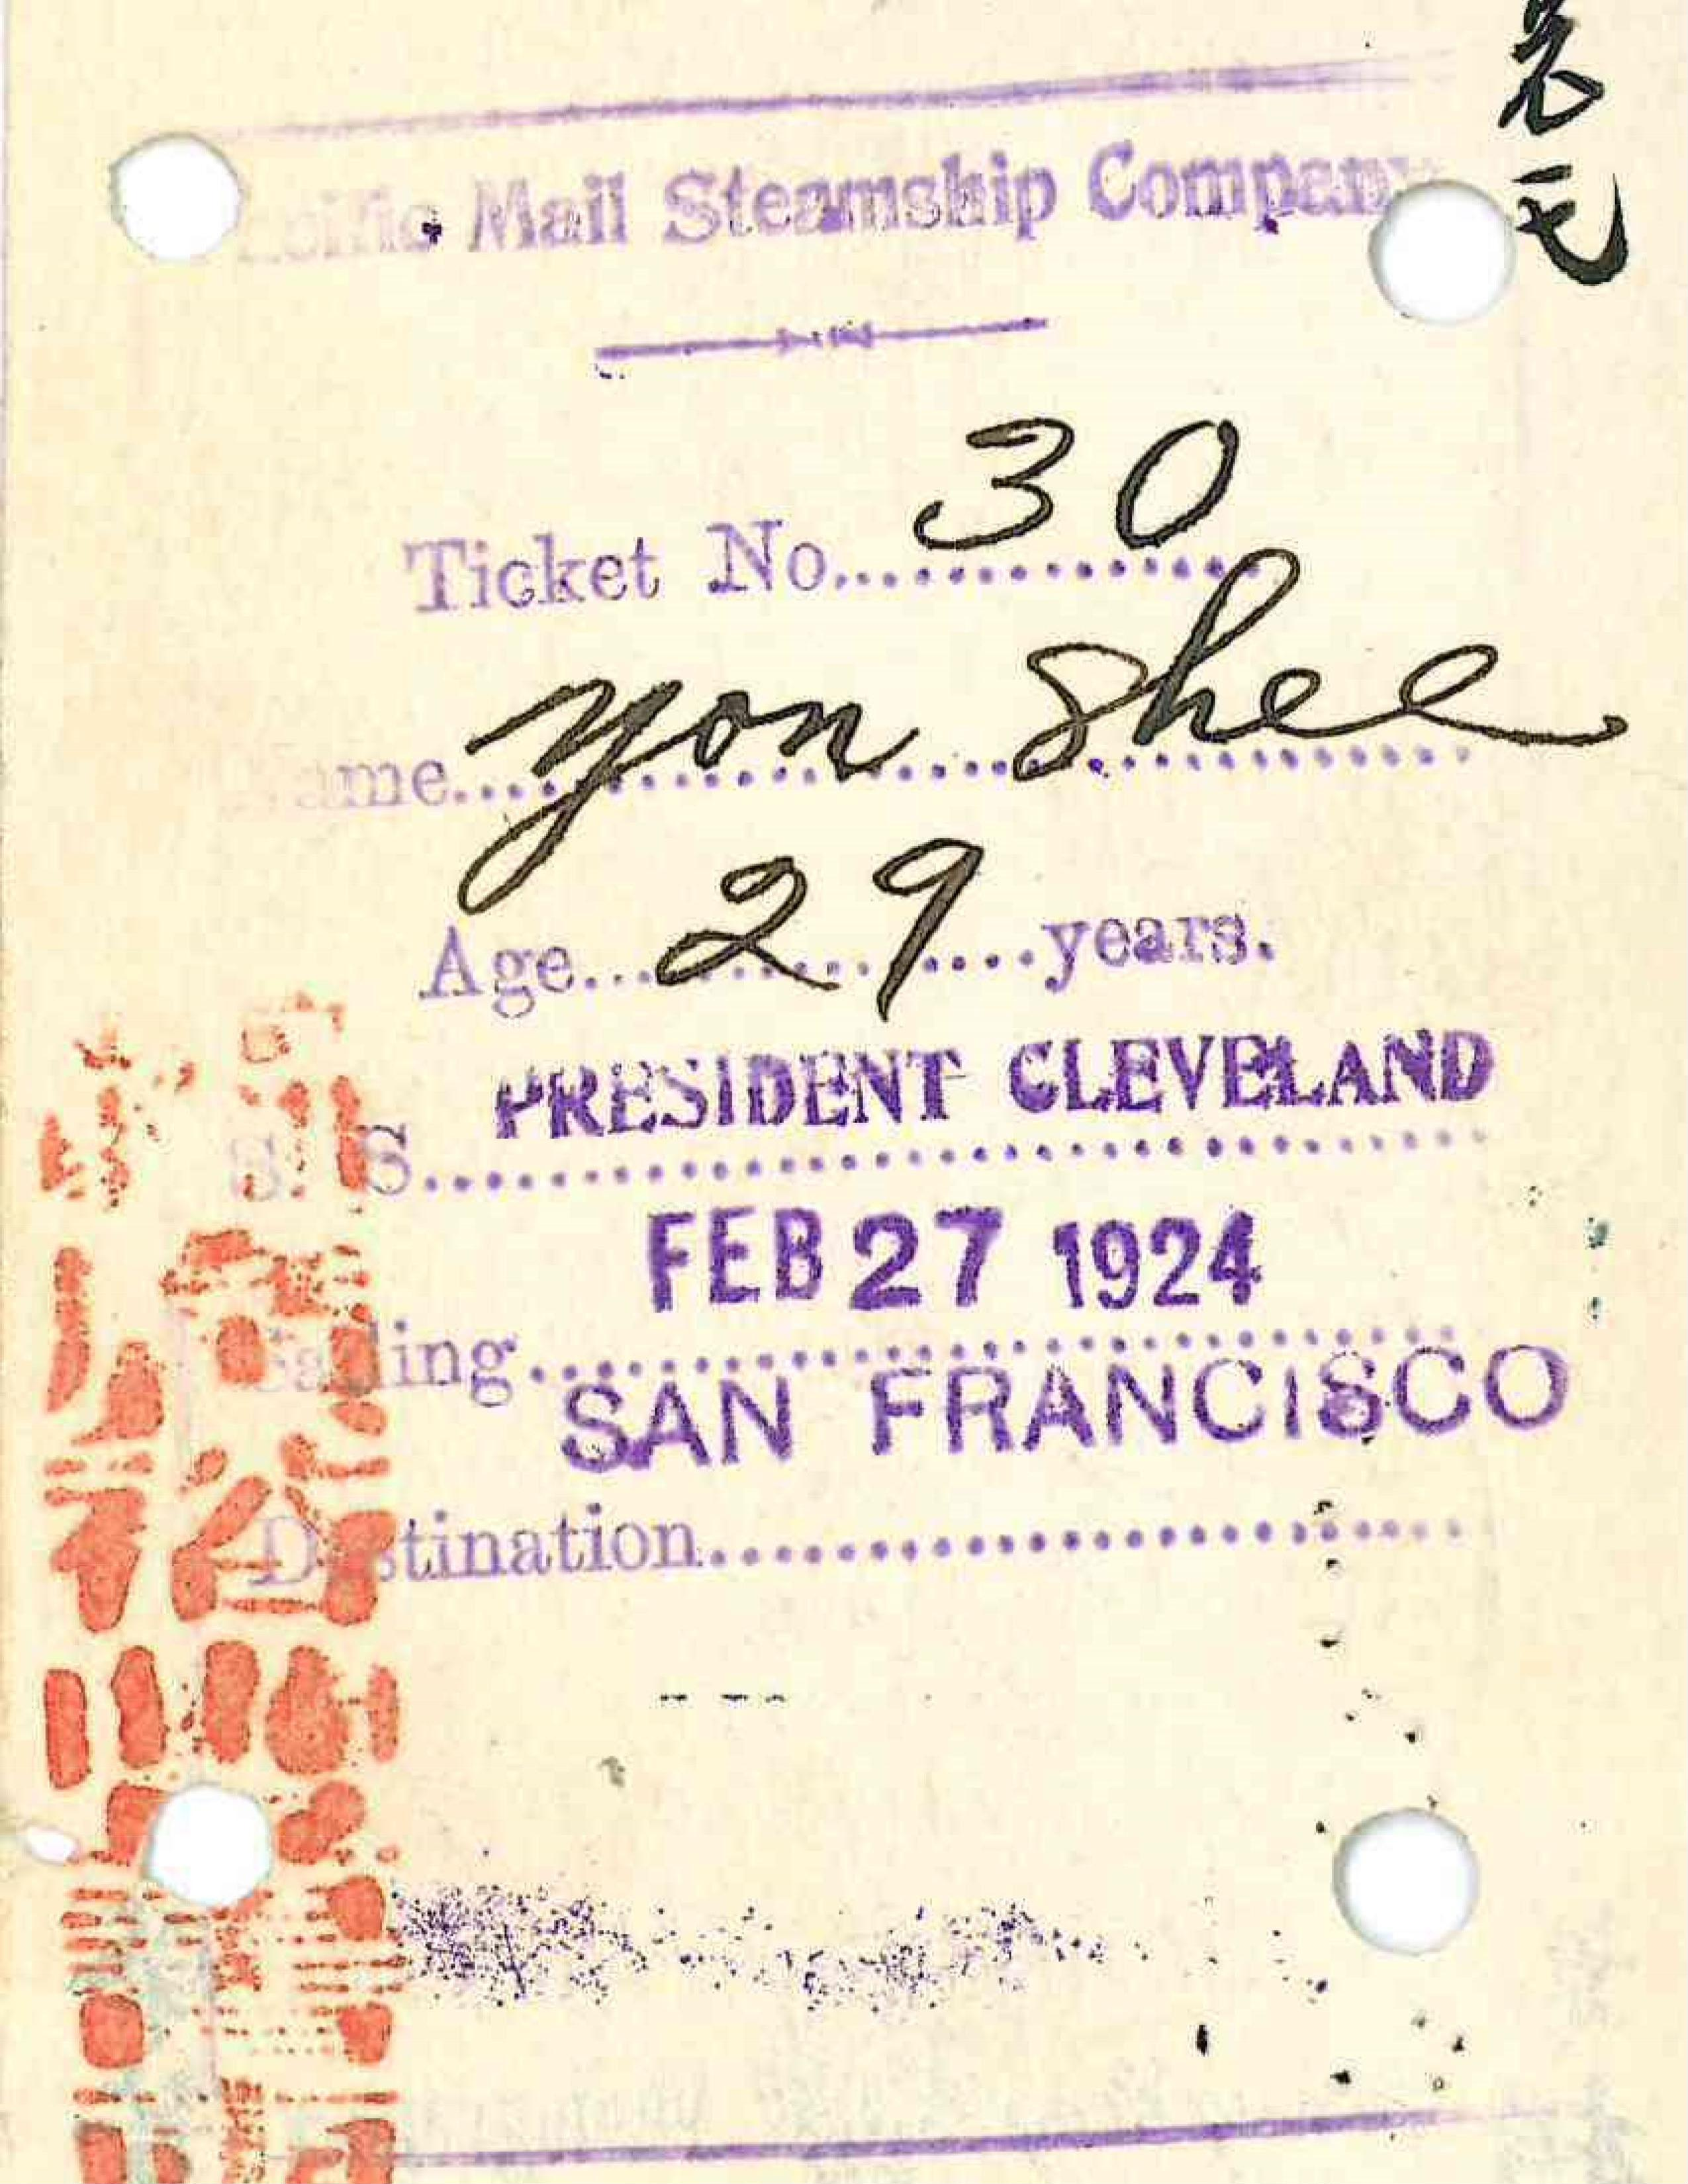 Pacific Mail Steamship Company
Ticket No. 30
Name. Yon Shee
Age. 29 years.
S. S. PRESIDENT CLEVELAND
FEB 27 1924
Sailing.
SAN FRANCISCO
Destination.